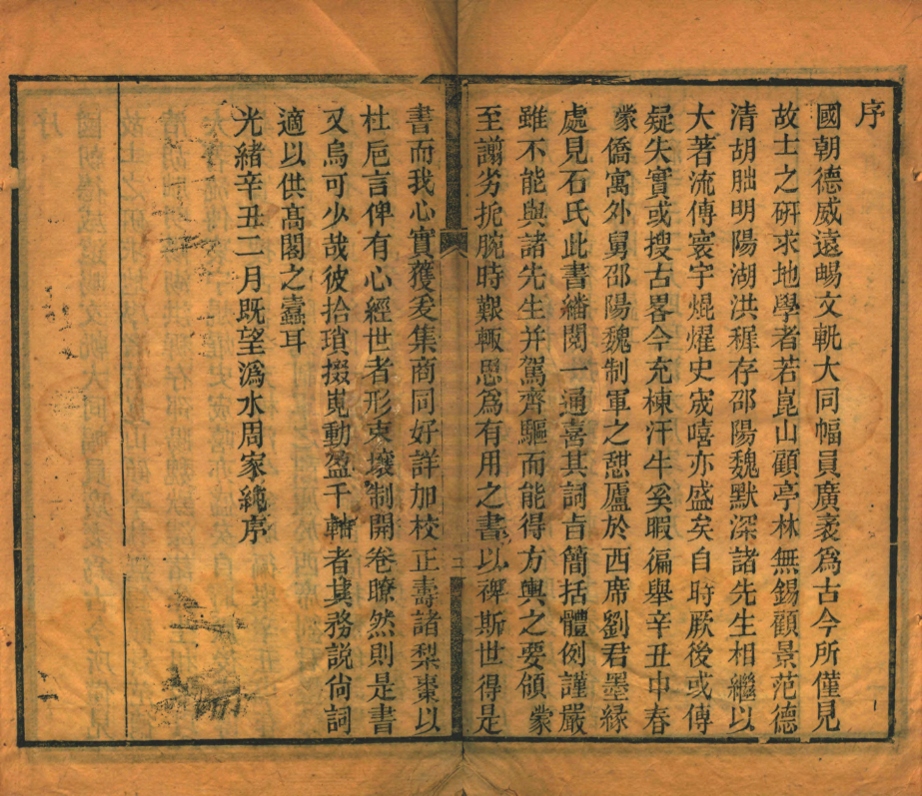 序
國朝德威遠暢文軌大同幅員廣袤爲古今所僅見
故士之硏求地學者若崑山顧亭林無錫顧景范德
清胡朏明陽湖洪穉存邵陽魏默深諸先生相繼以
大著流傳寰宇焜燿史宬嘻亦盛矣自時厥後或傳
疑失實或搜古畧今充棟汗牛奚暇徧舉辛丑中春
蒙僑寓外舅邵陽魏制軍之憩廬於西席劉君墨緣
處見石氏此書繙閱一通喜其詞旨簡括體例謹嚴
雖不能與諸先生并駕齊驅而能得方輿之要領蒙
至謭劣扼腕時艱輒思爲有用之書以裨斯世得是
書而我心實獲爰集商同好詳加校正壽諸梨棗以
杜卮言俾有心經世者形支壤制開卷瞭然則是書
又烏可少哉彼拾瑣掇嵬動盈千軸者其務説尙詞
適以供高閣之蠹耳
光緒辛丑二月既望溈水周家純序
二